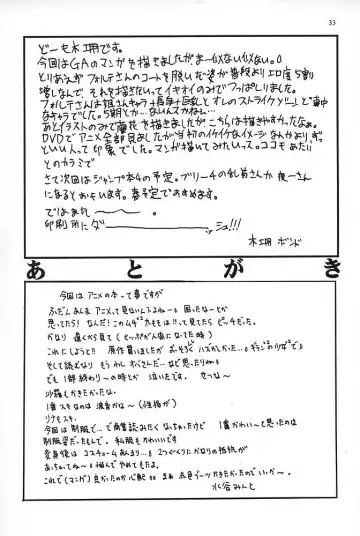 33
どーも木工用です。
今回はGAのマンガを描きましたがまー似ない似ない。
とりあえずフォルテさんのコートを脱いだ姿が普段よりエロ度5割
増しなんで、それを描きたいってイキオイのみでつっぱしりました。
フォルテさんは姐さんキャラ+長身+巨乳とオレのストライクゾーンど真中
なキャラでした。5期とか…ないんスかねぇ…
あとイラストのみで蘭花を描きましたが、こちらは描きやすかったなぁ。
DVDでアニメ全部見ましたが当初のイケイケなイメージなんかよりずっ
といい人って印象でした。マンガ描いてみたいっス。ココモあたり
とのカラミで
さて次回はジャンプ本4の予定。ブリーチの乳首さんか夜一さん
になるとおもいます。春予定ですすめてます。
ではまた〜。
印刷所にダーッシュ!!!
木工用ボンド
あとがき
今回はアニメの本って事ですが
ふだんあんまアニメって見ないんスよねー。困ったなーとか
思ってたら!なんだ!このムチ太ももは!!って見てたらビッチだった。
かなり遠くから見て(とっぷが人垣になってた時)
これにしよう!!原作買いましたがおそろくハズかしかった…。
そして読むなりもうわしオバさんだ…など思ったりね
でも1部終わり〜の時とか泣いてます。せつな〜
沙羅もかきたかったな。
1番スキなのは波音かな〜(性格が)
リナもスキ。
今回は制服で…で商業誌みたくなっちゃったけど1番かわい〜と思ったのは
制服姿だったもんで。私服もかわいいです
変身後はコスチュームあんまり…。2つくくりにかなりの抵抗が
あっちゃってね〜。悩んでやめてたよ。
これで(マンガ)良かったのか心配。。まぁお色ブーツかきたかったのでいいか〜。
水谷みんと